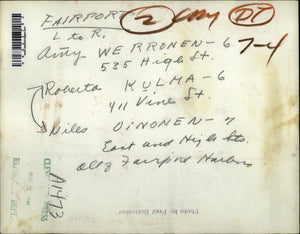 FAIRPORT 2 col DT
L to R.
Amy WERRONEN-6 7-4
535 High St.
Roberta KULMA-6
411 Vine St.
Niles OiNONEN-7
East and High Sts.
all of Fairport Harbor
A1473
CLEV PRESS
Photo by Fred Bottomer